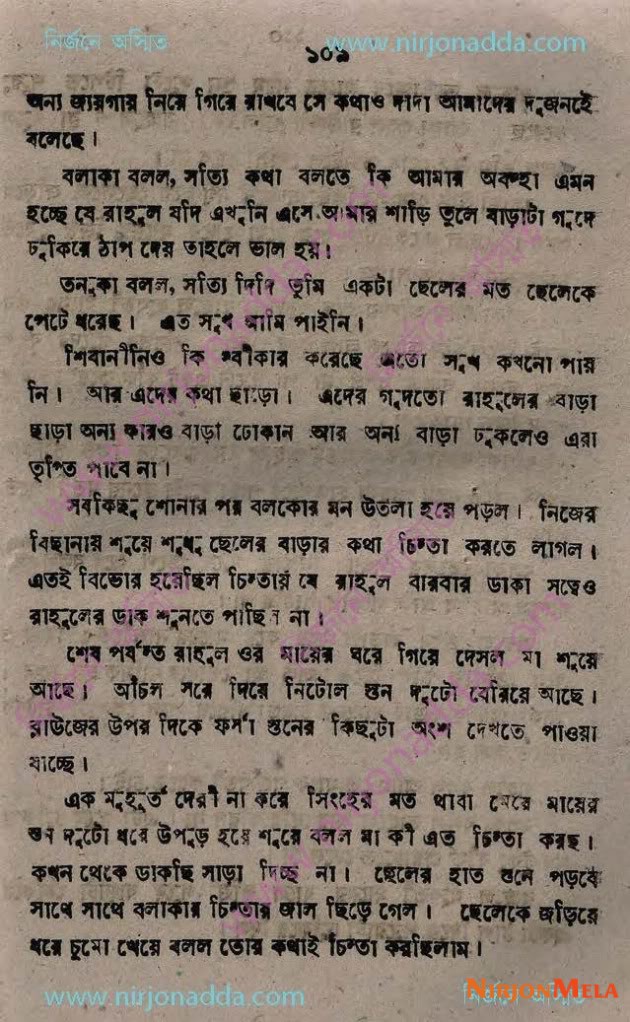 নির্জনে অস্মিত www.nirjonadda.com
১০৯
অন্য জায়গায় নিয়ে গিয়ে রাখবে সে কথাও দাদা আমাদের দুজনই
বলেছে।
বলাকা বলল, সত্যি কথা বলতে কি আমার অবস্হা এমন
হচ্ছে যে রাহুল যদি এখুনি এসে আমার শাড়ি তুলে বাড়াটা গুদে
ঢুকিয়ে ঠাপ দেয় তাহলে ভাল হয়।
তনুকা বলল, সত্যি দিদি তুমি একটা ছেলের মত ছেলেকে
পেটে ধরেছ। এত সুখ আমি পাইনি।
শিবানীনিও কি স্বীকার করেছে এতো সুখ কখনো পায়
নি। আর এদের কথা ছাড়ো। এদের গুদতো রাহুলের বাড়া
ছাড়া অন্য কারও বাড়া ঢোকান আর অন্য বাড়া ঢুকলেও এরা
তৃপ্তি পাবে না।
সবকিছু শোনার পর বলকোর মন উতলা হয়ে পড়ল। নিজের
বিছানায় শুয়ে শুধু ছেলের বাড়ার কথা চিন্তা করতে লাগল।
এতই বিভোর হয়েছিল চিন্তায় যে রাহুল বারবার ডাকা সত্বেও
রাহুলের ডাক শুনতে পাচ্ছি না।
শেষ পর্যন্ত রাহুল ওর মায়ের ঘরে গিয়ে দেসল মা শুয়ে
আছে। আঁচল সরে দিয়ে নিটোল স্তন দুটো বেরিয়ে আছে।
ব্লাউজের উপর দিকে ফর্সা স্তনের কিছুটা অংশ দেখতে পাওয়া
যাচ্ছে।
এক মুহূর্ত দেরী না করে সিংহের মত থাবা মেরে মায়ের
স্তন দুটো ধরে উপুড় হয়ে শুয়ে বলল মা কী এত চিন্তা করছ।
কখন থেকে ডাকছি সাড়া দিচ্ছ না। ছেলের হাত স্তনে পড়বে
সাথে সাথে বলাকার চিন্তার জাল ছিঁড়ে গেল। ছেলেকে জড়িয়ে
ধরে চুমো খেয়ে বলল তোর কথাই চিন্তা করছিলাম।
NIRJONMELA
www.nirjonadda.com নির্জনে অস্মিত